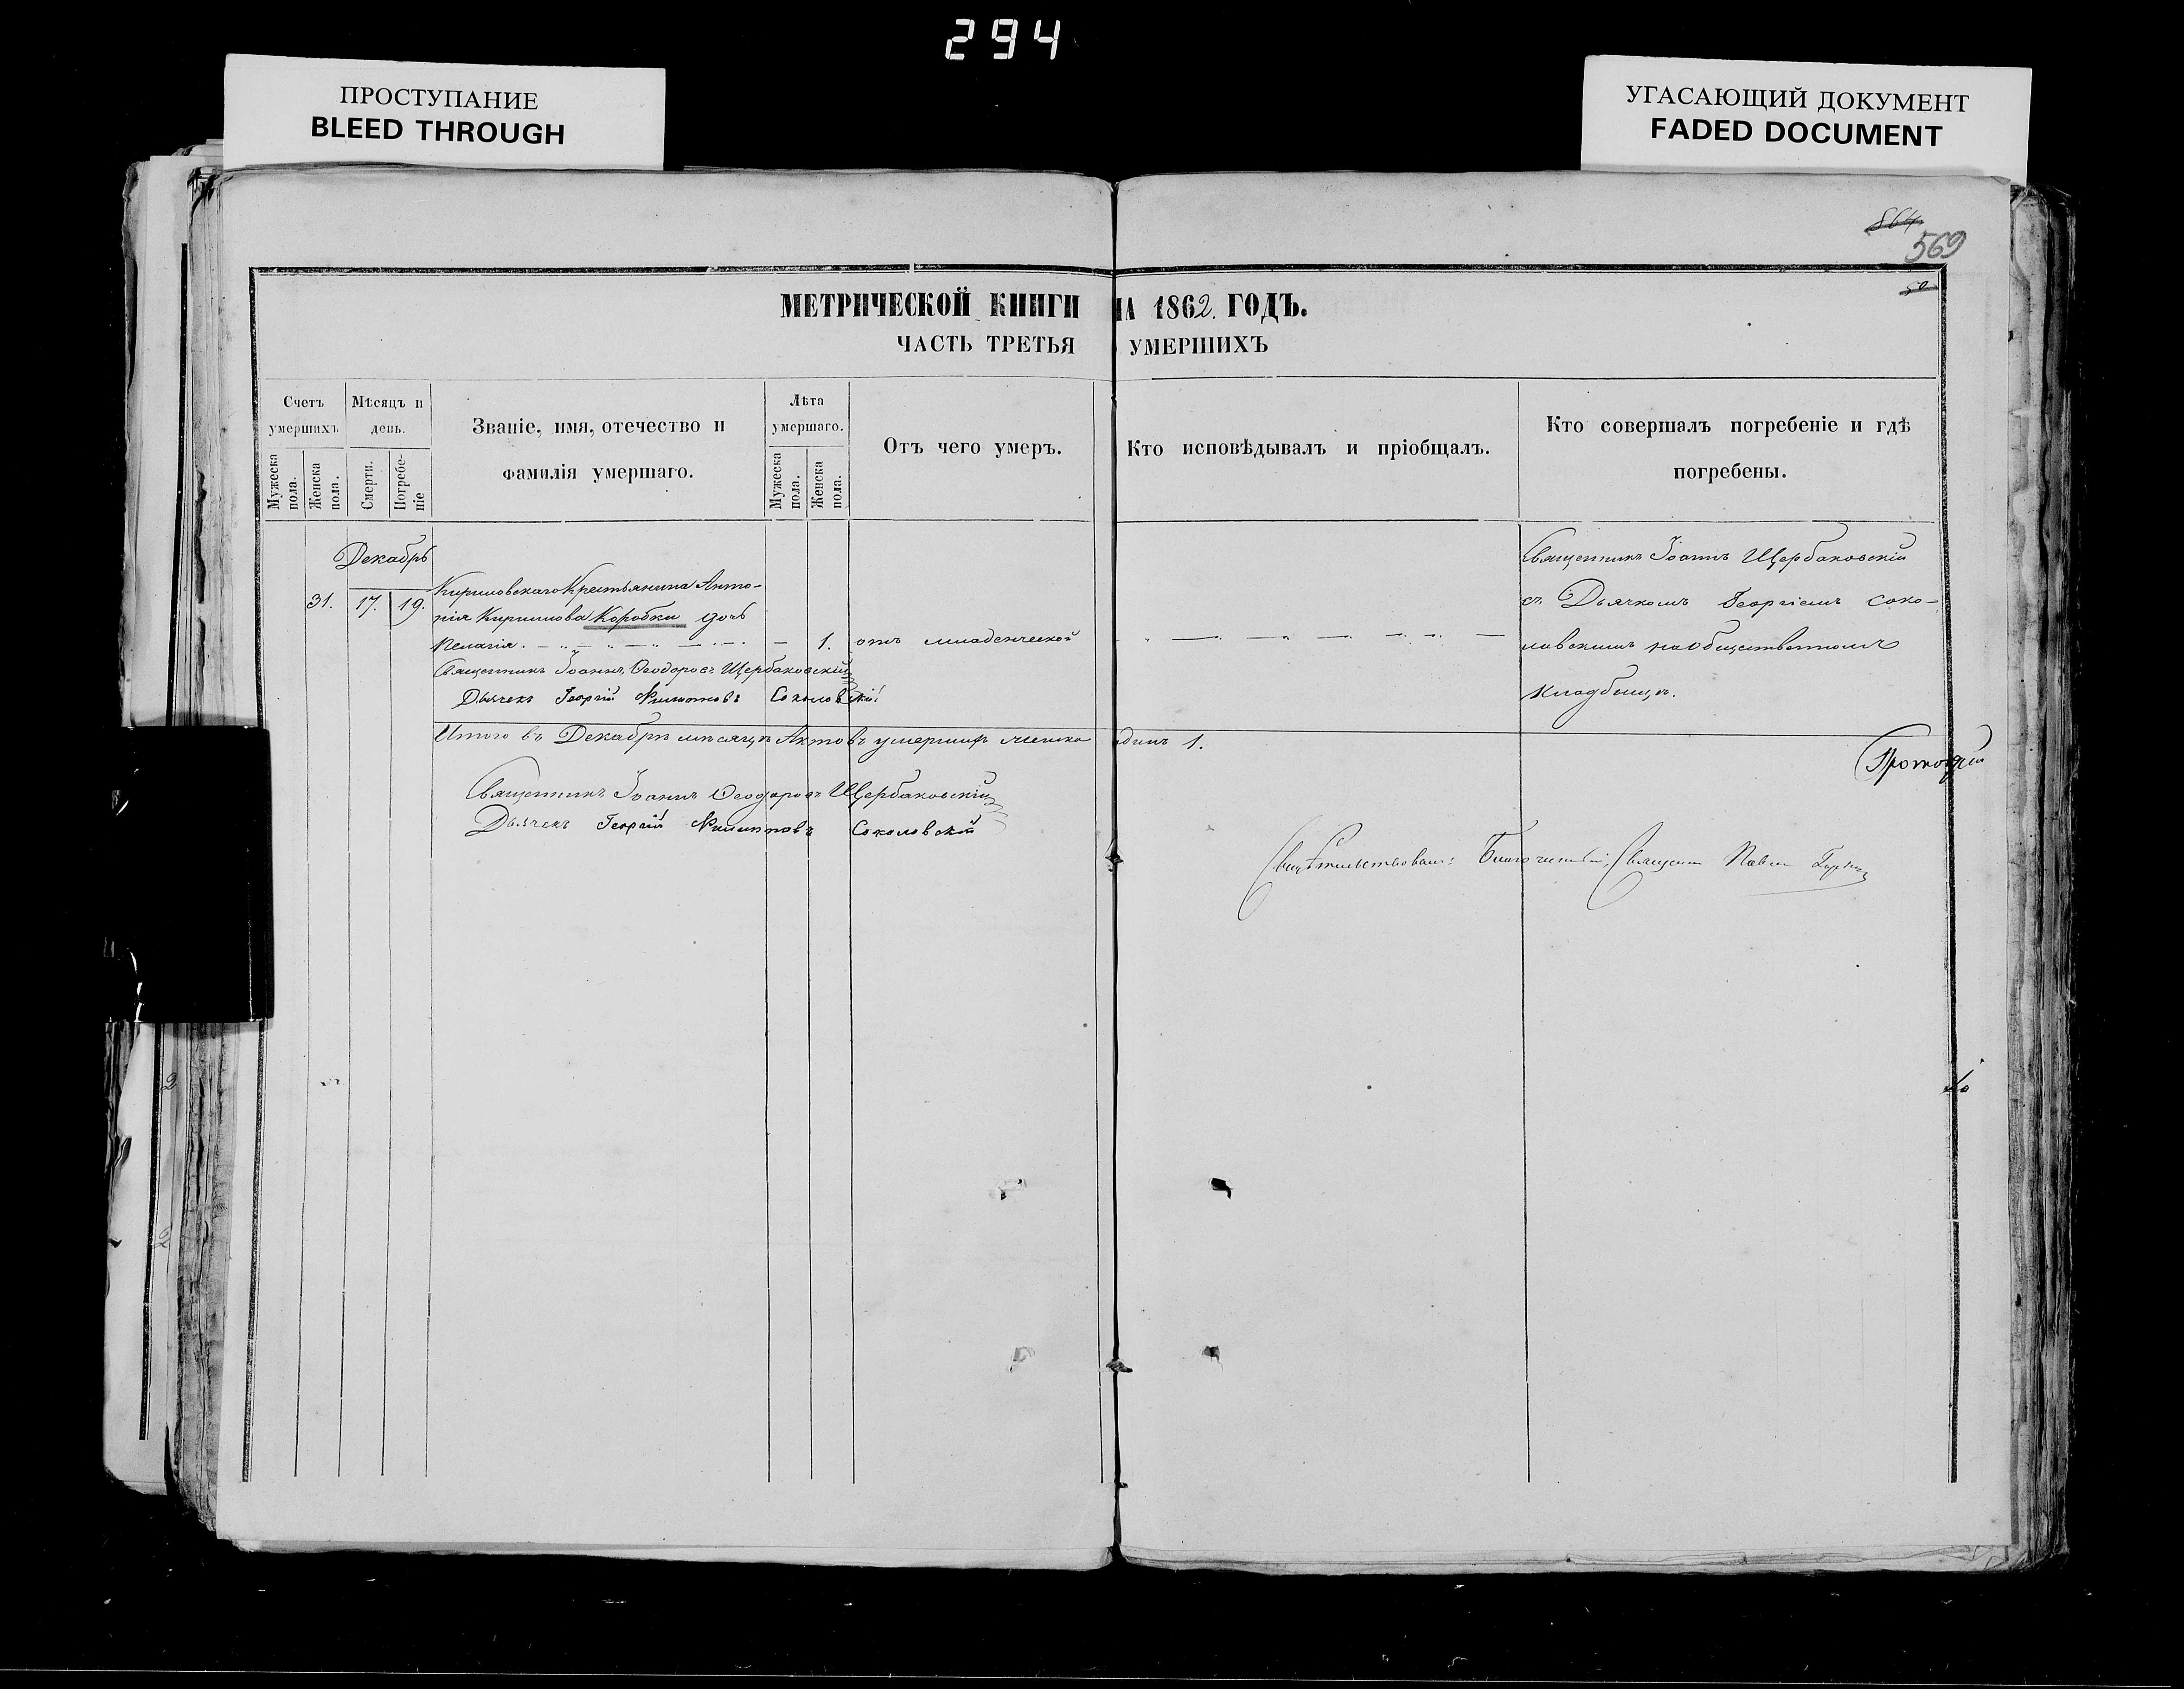 294
ПРОСТУПАНИЕ
BLEED THROUGH
УГАСАЮЩИЙ ДОКУМЕНТ
FADED DOCUMENT
864
569
МЕТРИЧЕСКОЙ КНИГИ НА 1862 ГОДЪ.
ЧАСТЬ ТРЕТЬЯ УМЕРШИХЪ
Счетъ умершихъ
Мужеска пола.
Женска пола.
Мѣсяцъ и день.
Смерти.
Погребеніе
Званіе, имя, отечество и
фамилія умершаго.
Лѣта умершаго.
Мужеска пола.
Женска пола.
Отъ чего умеръ.
Кто исповѣдывалъ и пріобщалъ.
Кто совершалъ погребеніе и гдѣ
погребены.
Декабрь
31. 17. 19.
Кириловскаго Крестьянина Анто-
нія Кириллова Коробки дочь
Пелагія. — 1. отъ младенческой
Священникъ Іоаннъ Щербаковскій
съ Дьячкомъ Георгіемъ Соко-
ловскимъ на общественномъ
кладбищѣ.
Священникъ Іоаннъ Ѳеодоровъ Щербаковскій
Дьячекъ Георгій Соколовскій
Итого въ Декабрѣ мѣсяцѣ Актовъ умерших женска одинъ 1.
Священникъ Іоаннъ Ѳеодоровъ Щербаковскій
Дьячекъ Георгій Соколовскій
Свидѣтельствовалъ: Благочинный, Священ Павел